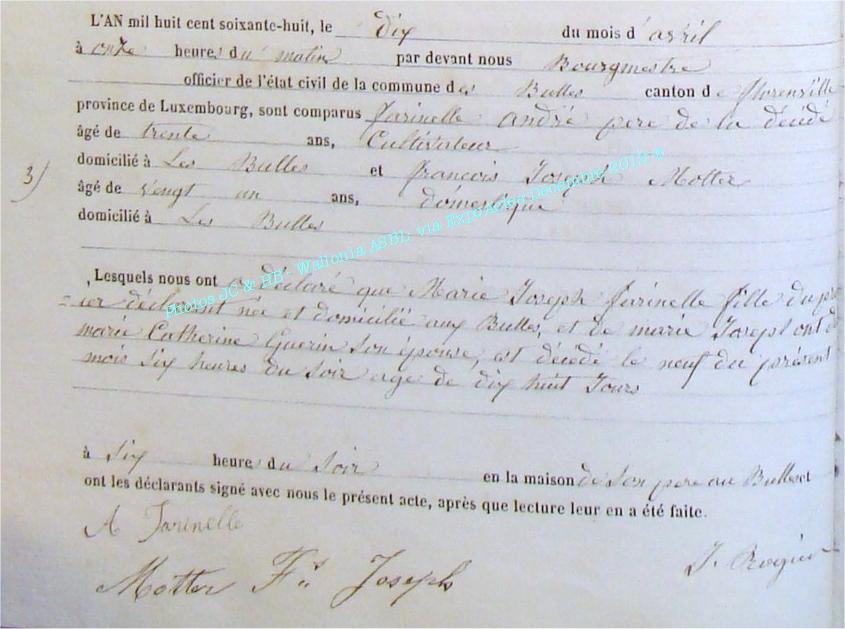 L'AN mil huit cent soixante-huit, le dix du mois d'avril
à onze heures du matin par devant nous Bourgmestre
officier de l'état civil de la commune des Bulles canton de florenville
province de Luxembourg, sont comparus farinelle andré pere de la décédé
âgé de trente ans, Cultivateur
domicilié à Les Bulles et françois Joseph Motter
3) âgé de vingt un ans, domestique
domicilié à Les Bulles
, Lesquels nous ont déclaré que Marie Joseph farinelle fille du pre
= ier déclarant née et domicilié aux Bulles, et de marie Joseph
marie Catherine Guerin son épouse, est décedé le neuf du présent
mois six heures du soir age de dix huit Jours
à six heure du soir en la maison de son pere au Bulles et
ont les déclarants signé avec nous le présent acte, après que lecture leur en a été faite.
A Farinelle
J. Rogier
Motter Fs Joseph
Photos JC & HB - Wallonia ASBL via ExpoActes Décembre 2012